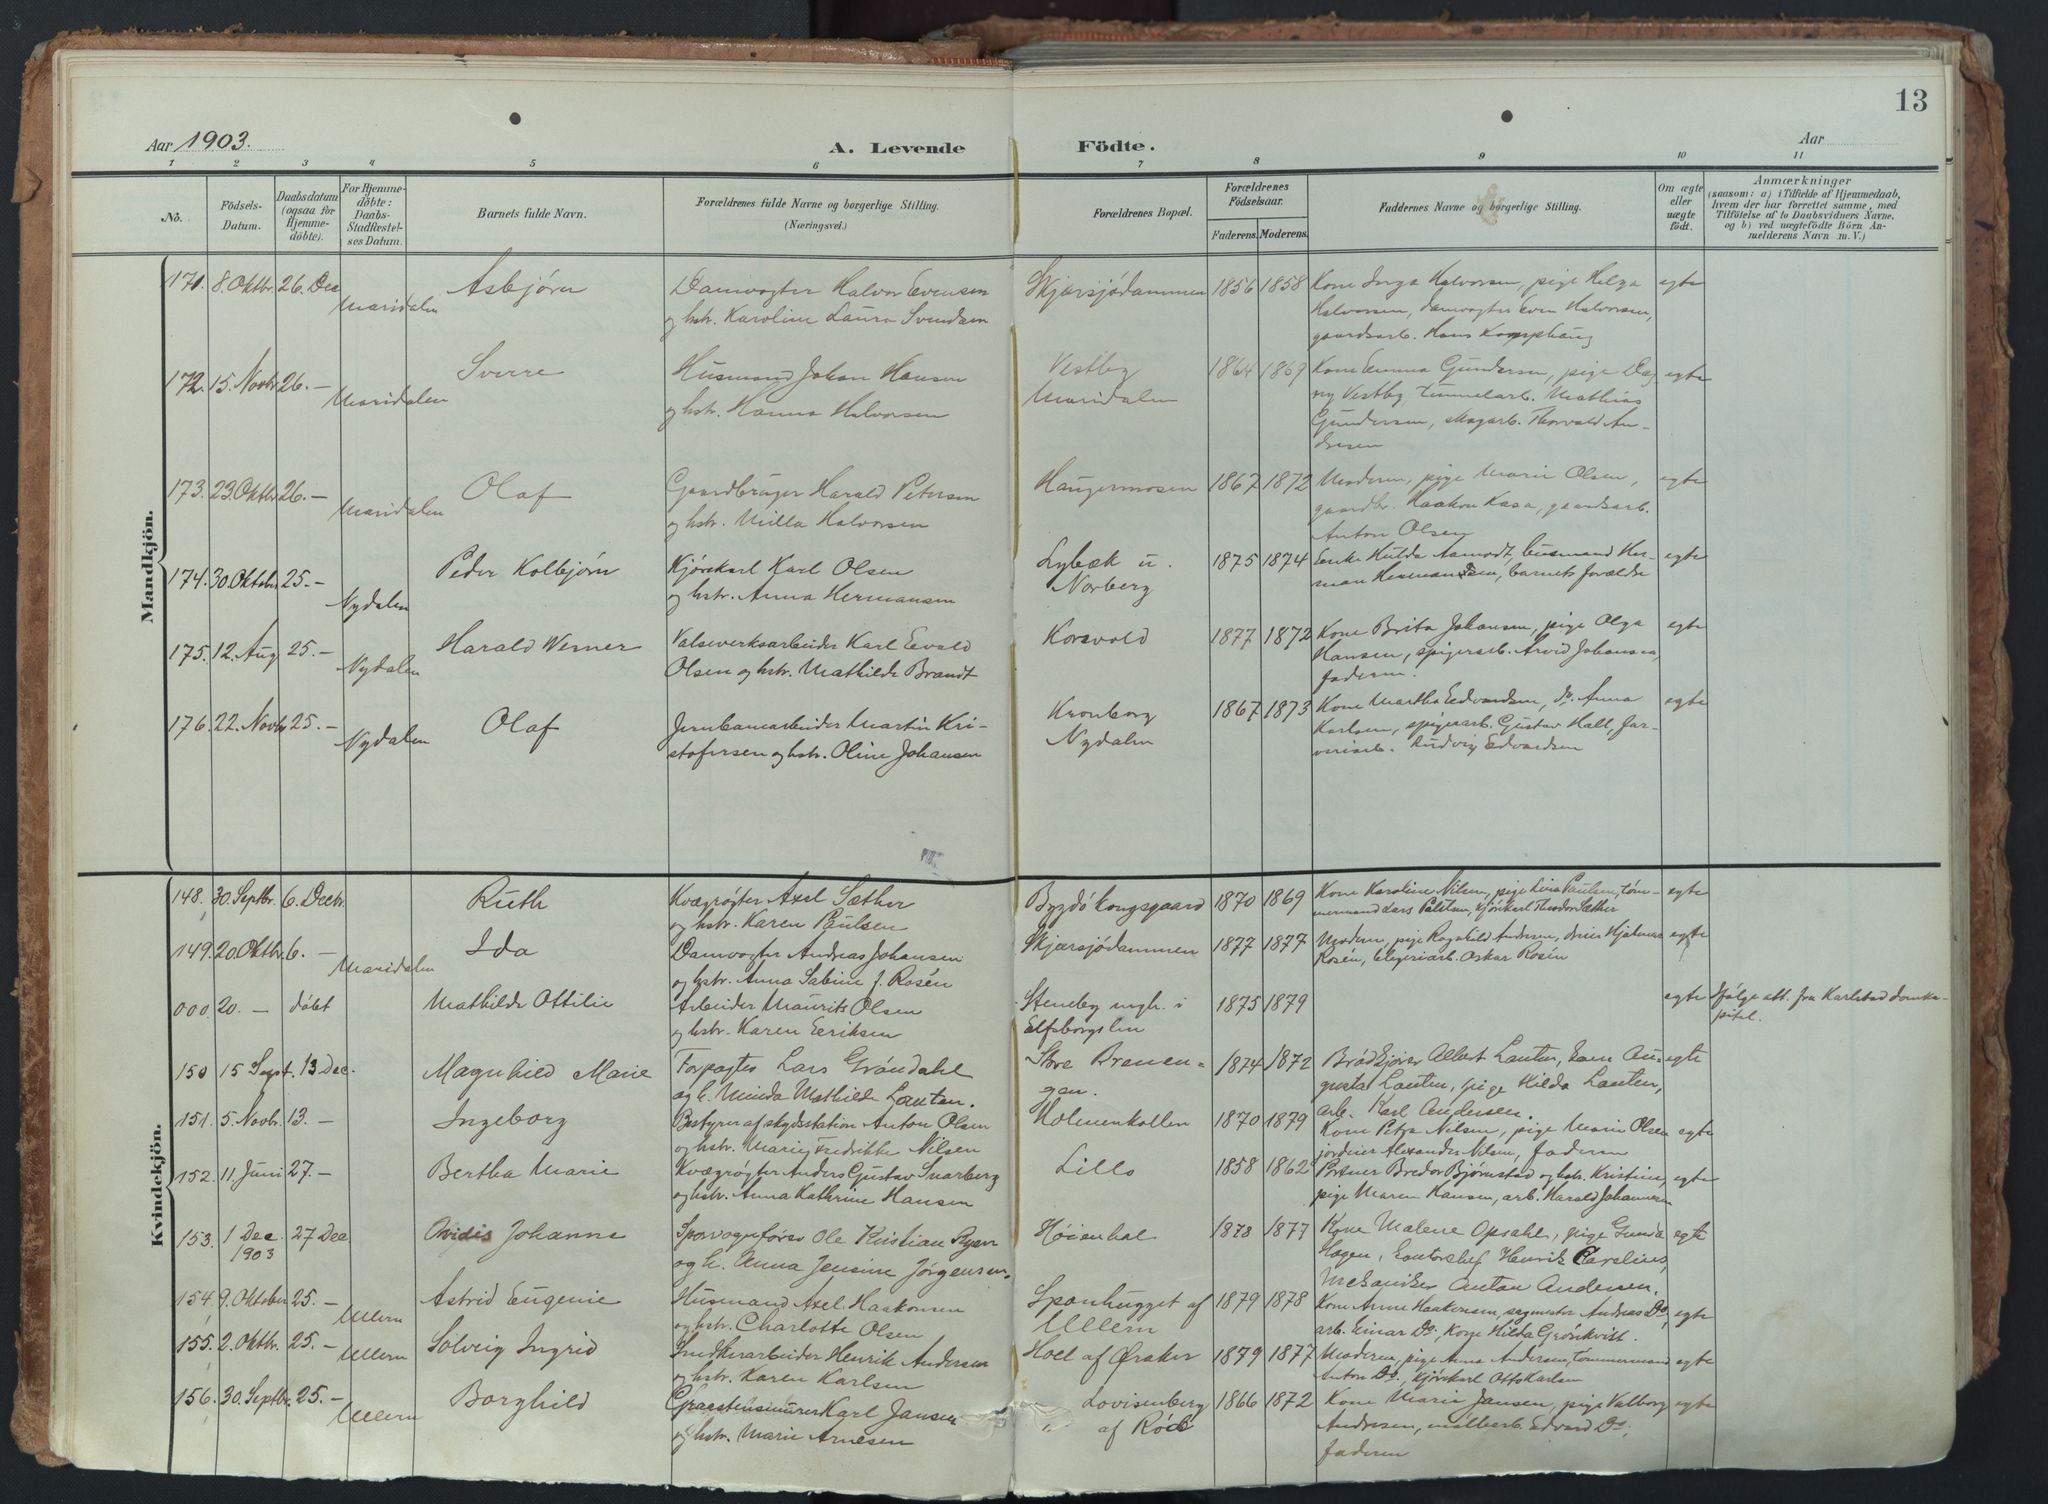 13
Aar 1903.
A. Levende Födte.
Aar
1 2 3 4 5 6 7 8 9 10 11
No.
Födsels-
Datum.
Daabsdatum
(ogsaa for
Hjemme-
döbte).
For Hjemme-
döbte:
Daabs-
Stadfæstel-
ses Datum.
Barnets fulde Navn.
Forældrenes fulde Navne og borgerlige Stilling.
(Næringsvei.)
Forældrenes Bopæl.
Forældrenes
Födselsaar.
Faderens. Moderens.
Faddernes Navne og borgerlige Stilling.
Om ægte
eller
uægte
født.
Anmærkninger
(saasom: a) i Tilfælde af Hjemmedaab,
hvem der har forrettet samme, med
Tilföielse af to Daabsvidners Navne,
og b) ved uægtefödte Börn An-
melderens Navn m. V.)
Mandkjön.
171. 8. Oktbr. 26. Dec Maridalen
Asbjørn
Damvogter Halvor Evensen
og hstr. Karoline Laura Svendsen
Skjærsjødammen 1856 1858
Kone Inga Halvorsen, pige Helga
Halvorsen, damvogter Even Halvorsen,
gaardsarb. Hans Kamphaug
egte
172. 15. Novbr 26. – Maridalen
Sverre
Husmand Johan Hansen
og hstr. Hanna Halvorsen
Vestby
Maridalen
1864 1869
Kone Emma Gundersen, pige Dag-
ny Vestby, tunnelarb. Mathias
Gundersen, Magarb. Thorvald An-
dresen
egte
173. 23. Oktbr 26. – Maridalen
Olaf
Gaardbruger Harald Petersen
og hstr. Milla Halvorsen
Haugermosen 1867 1872
Moderen, pige Marie Olsen,
gaardbr. Haakon Kasa, gaardsarb.
Anton Olsen
egte
174. 30. Oktober 25. – Nydalen
Peder Kolbjørn
Kjørekarl Karl Olsen
og hstr. Anna Hermansen
Lybæk u.
Norberg
1875 1874
Enke Hulda Aamodt, husmand Her-
man Hermansen, barnets forældre
egte
175. 12. Aug 25. – Nydalen
Harald Werner
Valseverksarbeider Karl Evald
Olsen og hstr. Mathilde Brandt
Korsvold 1877 1872
Kone Brita Johansen, pige Olga
Hansen, spigerarb. Arvid Johansen,
faderen.
egte
176. 22. Novbr 25. – Nydalen
Olaf
Jernbanearbeider Martin Kri-
stofersen og hstr. Oline Johansen
Kronborg
Nydalen
1867 1873
Kone Martha Edvardsen, do. Anna
Karlsen, spigerarb. Gustav Hall, far-
veriarb. Ludvig Edvardsen
egte
Kvindekjön.
148. 30. Septbr. 6. Decbr.
Ruth
Kvægrøgter Axel Sæther
og hstr. Karen Paulsen
Bygdö Kongsgaard 1870 1869
Kone Karoline Nilsen, pige Lina Paulsen, tøm-
mermand Lars Paulsen, kjørekarl Theodor Sæther
egte
149. 20. Oktbr. 6. – Maridalen
Ida
Damvogter Andreas Johansen
og hstr. Anna Sabine f. Rosén
Skjærsjødammen 1877 1877
Moderen, pige Ragnhild Andersen, dreier Hjalmar
Rosén, elegeriarb. Oskar Rosén
egte
000. 20. – døbt
Mathilde Ottilie
Arbeider Maurits Olsen
og hstr. Karen Eriksen
Steneby sogn i
Elfsborgs len
1875 1879
egte
Ifølge att. fra Karlstad domka-
pitel.
150 15 Sept. 13 Dec.
Magnhild Marie
Forpagter Lars Grøndahl
og h. Minda Mathilde Lauten.
Store Brannen-
gen.
1874 1872
Brødkjører Albert Lauten, kone Au-
gusta Lauten, pige Hilda Lauten,
arb. Karl Andersen.
egte
151. 5. Novbr. 13. –
Ingeborg
Bestyrer af skydsstation Anton Olsen
og hstr. Marie Fredrikke Nilsen
Holmenkollen 1870 1879
Kone Petra Nilsen, pige Marie Olsen
jordeier Alexander Nilsen, faderen
egte
152. 11. Juni 27. –
Bertha Marie
Kvægrøgter Anders Gustav Snarberg
og hstr. Anna Kathrine Hansen
Lillo 1858 1862
Portner Bredor Bjørnstad og hstr. Kristine,
pige Maren Hansen, arb. Harald Johannesen
egte
153. 1 Dec. 1903 27 Dec
Ovidis Johanne
Sporvognfører Ole Kristian Ryen
og h. Anna Jensine Jørgensen.
Høienhal 1878 1877
Kone Malene Opsahl, pige Gunda
Hagen, Kontorchef Henrik Carelius,
Mekaniker Anton Andersen.
egte
154. 9. Oktober 25. – Ullern
Astrid Eugenie
Husmand Axel Haakonsen
og hstr. Charlotte Olsen
Sponhugget af
Ullern
1879 1878
Kone Anne Haakonsen, sagmester Andreas Do,
arb. Einar Do, Kone Hilda Grönkvist.
egte
155. 2. Oktbr. 25. – Ullern
Solveig Ingrid
Snedkerarbeider Henrik Andersen
og hstr. Karen Karlsen
Hoel af Øraker 1879 1877
Moderen, pige Anna Andersen, tømmermand
Anton Do, kjørekarl Otto Karlsen
egte
156. 30. Septbr. 25. – Ullern
Borghild
Graastensmurer Karl Jansen
og hstr. Marie Arnesen
Lovisenberg
af Røa
1866 1872
Kone Marie Jansen, pige Valborg
Andresen, möllearb. Edvard Do,
faderen
egte